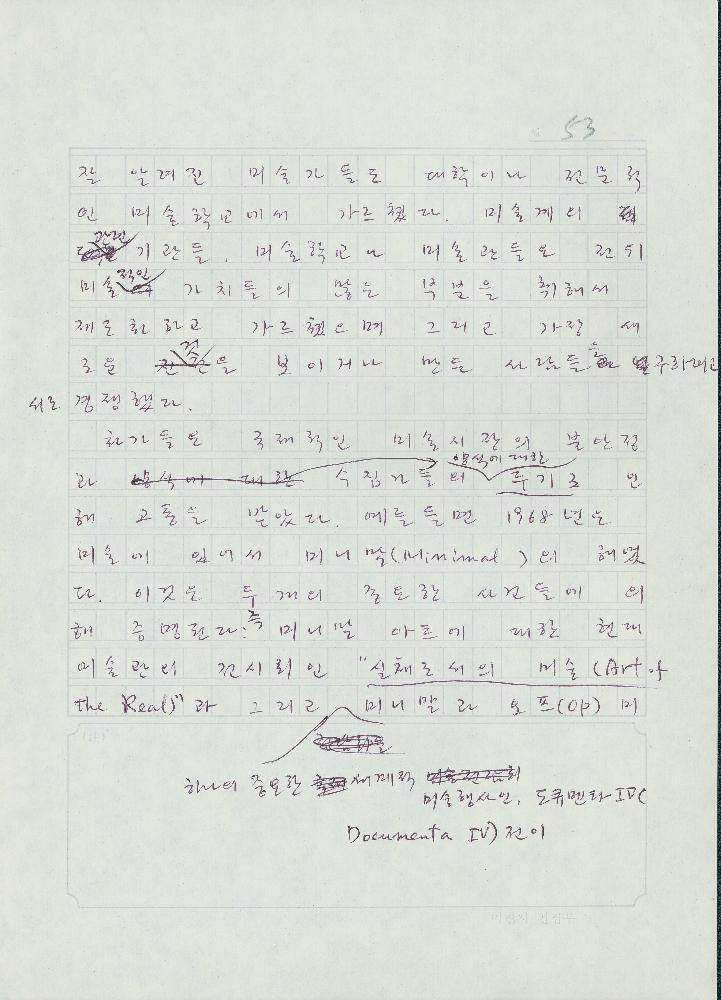 53
잘 알려진 미술가들도 대학이나 전문적
인 미술학교에서 가르쳤다. 미술계의
관련
기관들, 미술학교나 미술관들은 전위
적인
미술 가치들의 많은 부분을 취해서
제도화하고 가르쳤으며 그리고 가장 새
것
로운 을 보이거나 만든 사람들을 구하려고
서로 경쟁했다.
화가들은 국제적인 미술시장의 불안정
양식에 대한
과 양식에 대한 수집가들의 투기로 인
해 고통을 받았다. 예를들면 1968년은
미술에 있어서 미니말(Minimal)의 해였
다. 이것은 두 개의 중요한 사건들에 의
해 증명된다: 즉 미니말 아트에 대한 현대
미술관의 전시회인 "실체로서의 미술(Art of
the Real)"과 그리고 미니말과 오프(Op) 미
하나의 중요한 국제적
미술행사인, 도큐멘타 IV(
Documenta IV)전이